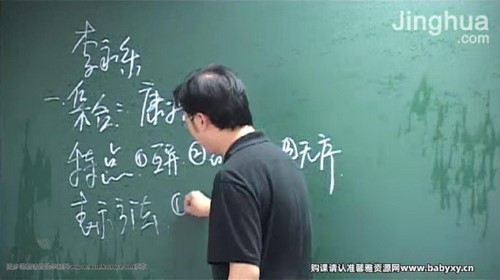 Jinghua
.com
李永乐
一.集合:康
特点①互异②③无序
表示方法①
购课请认准馨雅资源网www.babyxy.cn